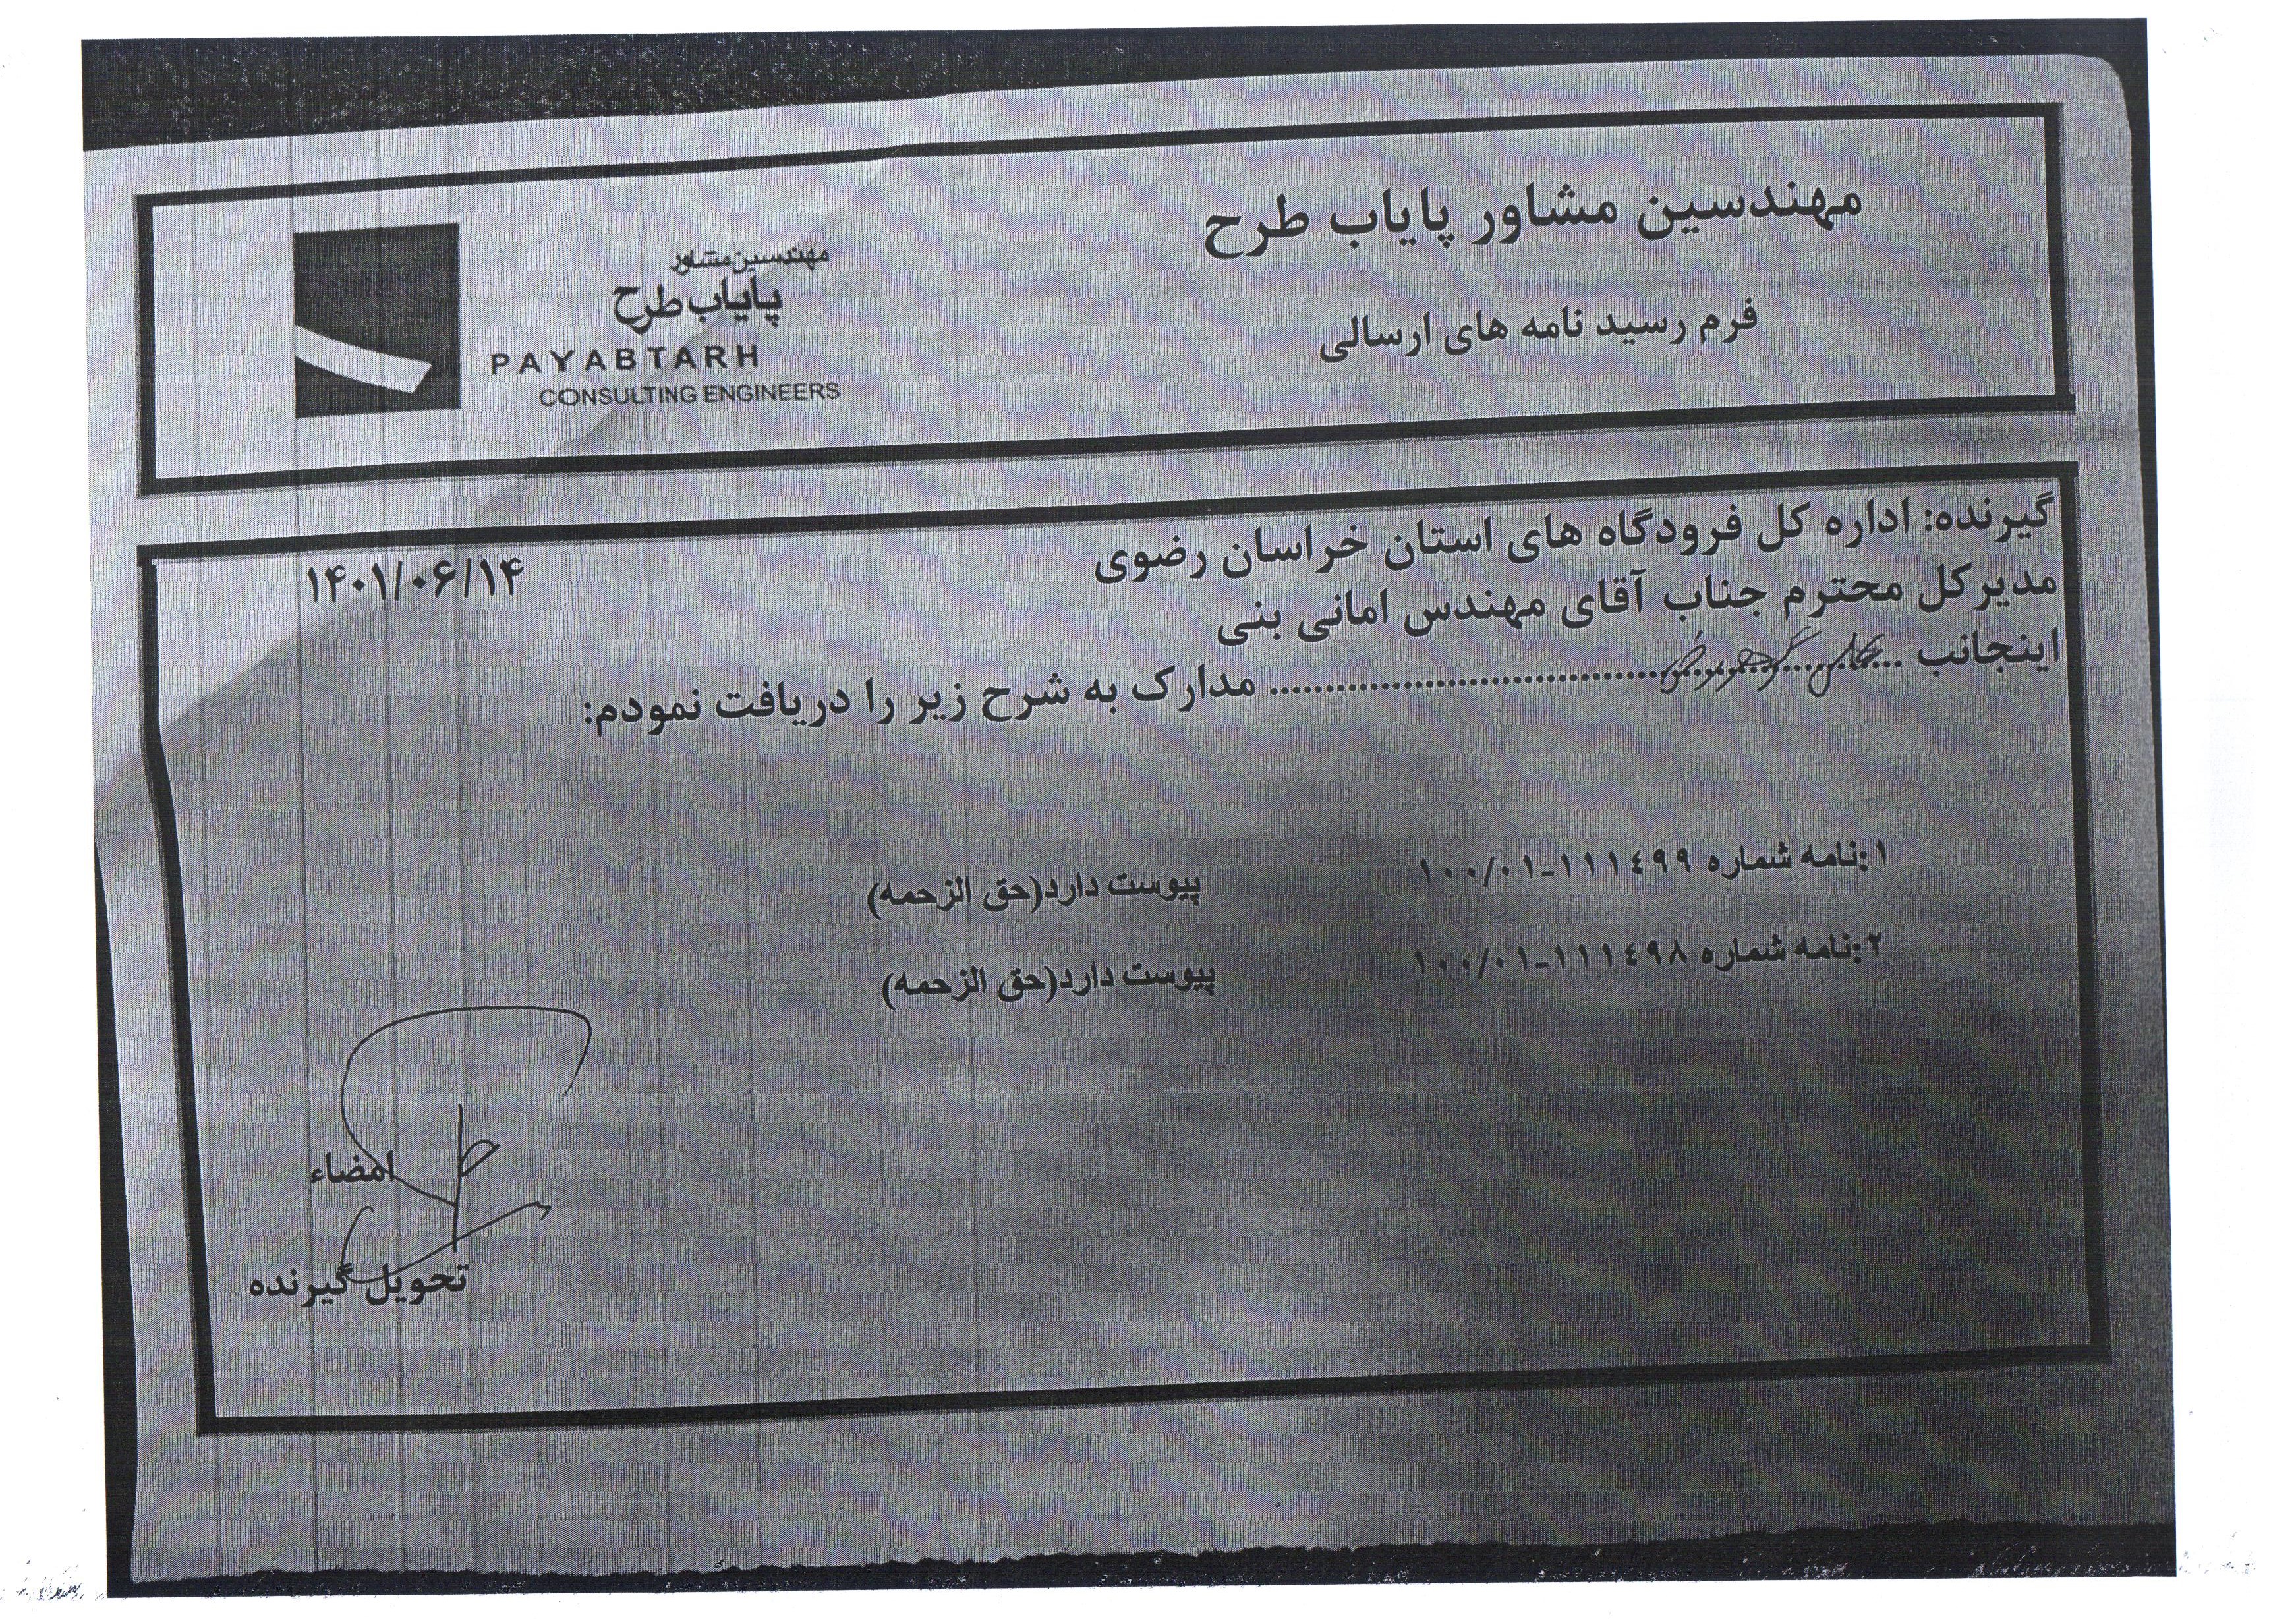 مهندسین مشاور پایاب طرح
فرم رسید نامه های ارسالی
مهندسین مشاور
پایاب طرح
PAYABTARH
CONSULTING ENGINEERS
گیرنده: اداره کل فرودگاه های استان خراسان رضوی
۱۴۰۱/۰۶/۱۴
مدیرکل محترم جناب آقای مهندس امانی بنی
اینجانب ........ مدارک به شرح زیر را دریافت نمودم:
۱:نامه شماره ۱۱۱٤۹۹-۱۰۰/۰۱ پیوست دارد(حق الزحمه)
۲:نامه شماره ۱۱۱٤۹۸-۱۰۰/۰۱ پیوست دارد(حق الزحمه)
امضاء
تحویل گیرنده